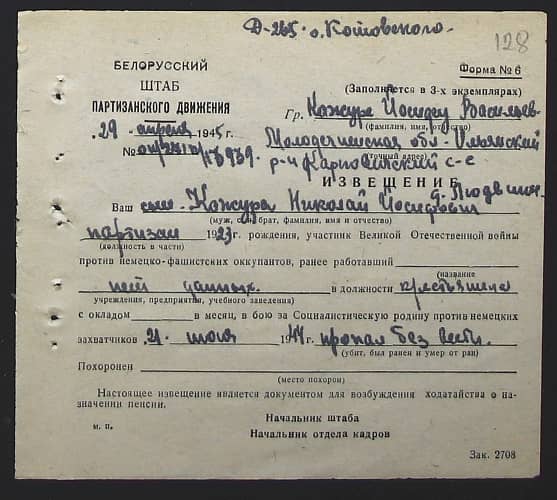 Д-265 о. Котовского.
128
БЕЛОРУССКИЙ
ШТАБ
ПАРТИЗАНСКОГО ДВИЖЕНИЯ
Форма № 6
(Заполняется в 3-х экземплярах)
Гр. Кожуре Иосифу Васильев.
(фамилия, имя, отчество)
29 апреля 1945 г.
Молодечненская обл. Ильянский
(точный адрес)
р-н
с-с
ИЗВЕЩЕНИЕ
Ваш сын - Кожура Николай Иосифович
(муж, сын, брат, фамилия, имя и отчество)
партизан 1923 г. рождения, участник Великой Отечественной войны
(должность в части)
против немецко-фашистских оккупантов, ранее работавший
(название
нет данных. в должности крестьянина
учреждения, предприятия, учебного заведения)
с окладом в месяц, в бою за Социалистическую родину против немецких
захватчиков 21 июля 1944 г. пропал без вести.
(убит, был ранен и умер от ран)
Похоронен
(место похорон)
Настоящее извещение является документом для возбуждения ходатайства о на-
значении пенсии.
Начальник штаба
м. п.
Начальник отдела кадров
Зак. 2708